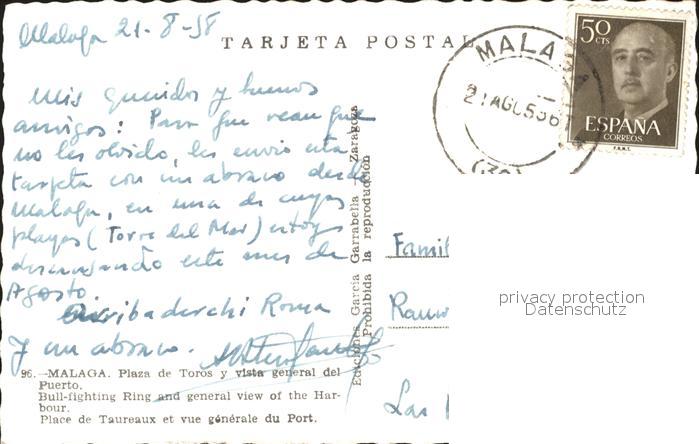 Malaga 21-8-58
TARJETA POSTAL
MALA
21 AGO 58
50
CTS
ESPAÑA
CORREOS
F.N.M.T.
Mis queridos y buenos
amigos: Para que vean que
no les olvido, les envio esta
tarjeta con un abrazo desde
Malaga, en una de cuyas
playas (Torre del Mar) estoy
descansando este mes de
Agosto.
Arribaderchi Roma
Y un abrazo.
Ediciones Garcia Garrabella — Zaragoza
Prohibida la reproducción
Famil
Ramo
Las
privacy protection
Datenschutz
96.—MALAGA. Plaza de Toros y vista general del
Puerto.
Bull-fighting Ring and general view of the Har-
bour.
Place de Taureaux et vue générale du Port.